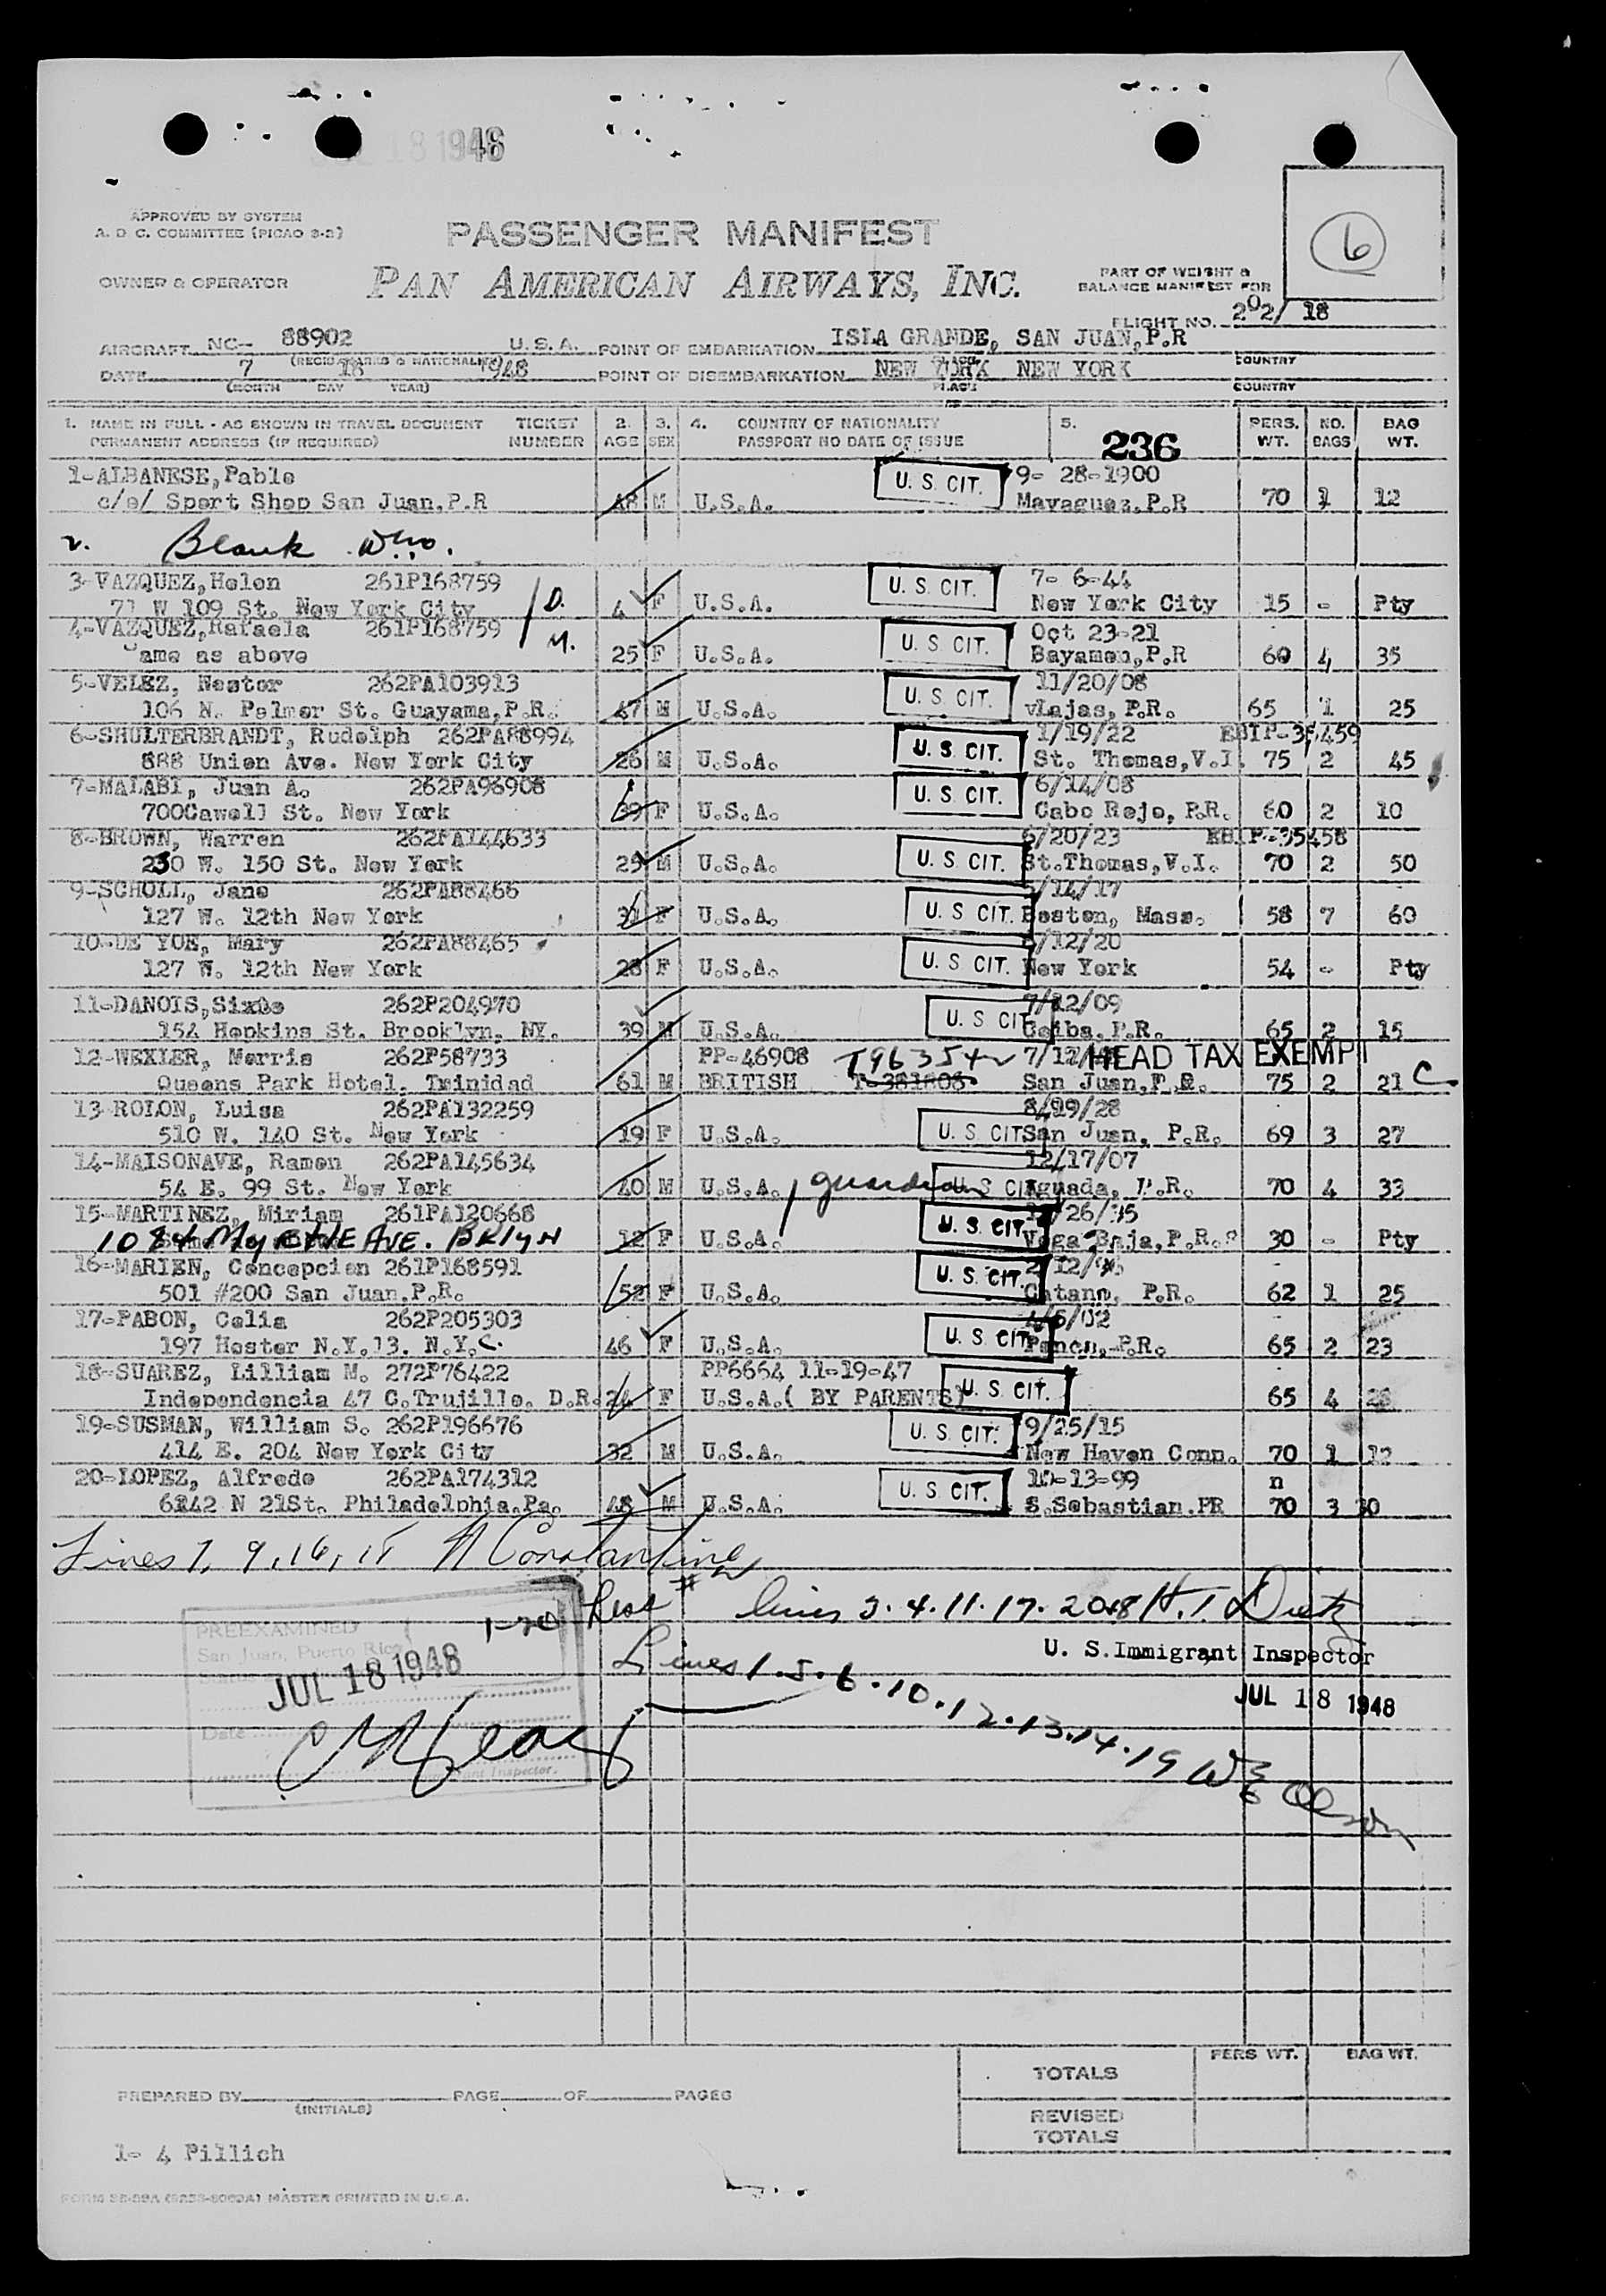 JUL 18 1948
APPROVED BY SYSTEM
A. D C. COMMITTEE (PICAO 2-2)
PASSENGER MANIFEST
6
OWNER & OPERATOR
PAN AMERICAN AIRWAYS, INC.
PART OF WEIGHT &
BALANCE MANIFEST FOR
FLIGHT NO. 202/ 18
AIRCRAFT NC- 88902 U. S. A. POINT OF EMBARKATION ISLA GRANDE, SAN JUAN, P.R
(REGIS. MARKS & NATIONALITY) PLACE COUNTRY
DATE 7 18 1948 POINT OF DISEMBARKATION NEW YORK NEW YORK
(MONTH DAY YEAR) PLACE COUNTRY
1. NAME IN FULL - AS SHOWN IN TRAVEL DOCUMENT TICKET 2. 3. 4. COUNTRY OF NATIONALITY 5. PERS. NO. BAG
PERMANENT ADDRESS (IF REQUIRED) NUMBER AGE SEX PASSPORT NO DATE OF ISSUE 236 WT. BAGS WT.
1-ALBANESE,Pablo U. S. CIT. 9- 28-1900
c/o/ Sport Shop San Juan,P.R 48 M U.S.A. Mayaguez,P.R 70 1 12
2. Blank
3-VAZQUEZ,Helen 261P168759 D. U. S. CIT. 7- 6-44
71 W 109 St. New York City 4 F U.S.A. New York City 15 - Pty
4-VAZQUEZ,Rafaela 261P168759 M. U. S. CIT. Oct 23-21
Same as above 25 F U.S.A. Bayamon,P.R 60 4 35
5-VELEZ, Nestor 262PA103913 U. S. CIT. 11/20/08
106 N. Palmer St. Guayama,P.R. 47 M U.S.A. Lajas, P.R. 65 1 25
6-SHULTERBRANDT, Rudolph 262PA88994 U. S. CIT. 1/19/22 EBIP-35459
888 Union Ave. New York City 26 M U.S.A. St. Thomas,V.I. 75 2 45
7-MALABI, Juan A. 262PA96908 U. S. CIT. 6/14/08
700Cawell St. New York 39 F U.S.A. Cabo Rojo, P.R. 60 2 10
8-BROWN, Warren 262PA144633 U. S. CIT. 6/20/23 EBIP-35458
230 W. 150 St. New York 25 M U.S.A. St.Thomas,V.I. 70 2 50
9-SCHOLL, Jane 262PA88466 U. S CIT. /14/17
127 W. 12th New York 31 F U.S.A. Boston, Mass. 58 7 60
10-DE YOE, Mary 262PA88465 U. S CIT. /12/20
127 W. 12th New York 28 F U.S.A. New York 54 - Pty
11-DANOIS,Sixto 262P204970 U. S CIT 7/12/09
154 Hopkins St. Brooklyn, NY. 39 M U.S.A. Ceiba, P.R. 65 2 15
12-WEXLER, Morris 262P58733 PP-46908 T963542 7/12/ HEAD TAX EXEMPT
Queens Park Hotel. Trinidad 61 M BRITISH T-381806 San Juan,P.R. 75 2 21 C
13 ROLON, Luisa 262PA132259 8/19/28
510 W. 140 St. New York 19 F U.S.A. U. S CIT San Juan, P.R. 69 3 27
14-MAISONAVE, Ramon 262PA145634 12/17/07
54 E. 99 St. New York 40 M U.S.A. guardian U S CIT Aguada, P.R. 70 4 33
15-MARTINEZ, Miriam 261PA120668 U. S. CIT. /26/35
1084 MyRtle AVE. BKlyN 12 F U.S.A. Vega Baja, P.R. 30 - Pty
16-MARIEN, Concepcion 261P168591 U. S. CIT. 2/12/96
501 #200 San Juan,P.R. 52 F U.S.A. Catano, P.R. 62 1 25
17-PABON, Celia 262P205303 U. S. CIT /5/02
197 Hester N.Y.13. N.Y.C. 46 F U.S.A. Ponce, P.R. 65 2 23
18-SUAREZ, Lilliam M. 272P76422 PP6664 11-19-47
Independencia 47 C.Trujillo. D.R. 24 F U.S.A.( BY PARENTS) U. S CIT. 65 4 28
19-SUSMAN, William S. 262P196676 U. S. CIT. 9/25/15
414 E. 204 New York City 32 M U.S.A. New Haven Conn. 70 1 12
20-LOPEZ, Alfredo 262PA174312 U. S. CIT. 10-13-99 n
6242 N 21St. Philadelphia,Pa. 48 M U.S.A. S.Sebastian.PR 70 3 30
Lines 7, 9, 16, 18 A Constantine
1-20 lines 3. 4. 11. 17. 20 & 8 H. T. Dietz
U. S. Immigrant Inspector
PREEXAMINED
San Juan, Puerto Rico
JUL 18 1948
Lines 1. 5. 6. 10. 12. 13. 14. 19 W E Olson
JUL 18 1948
Date
Immigrant Inspector.
TOTALS PERS WT. BAG WT.
PREPARED BY PAGE OF PAGES
(INITIALS)
REVISED
TOTALS
1- 4 Pillich
MASTER PRINTED IN U.S.A.